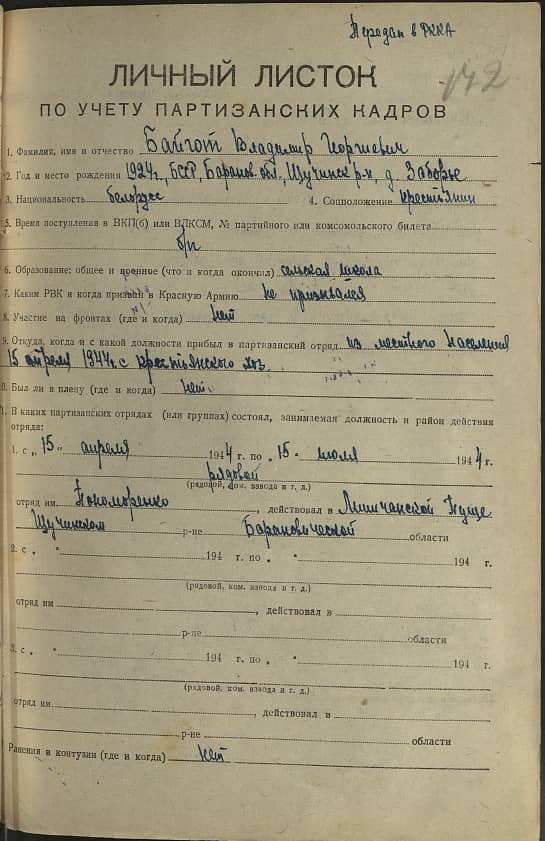 Передан в РККА
142
ЛИЧНЫЙ ЛИСТОК
ПО УЧЕТУ ПАРТИЗАНСКИХ КАДРОВ
1. Фамилия, имя и отчество Байгот Владимир Георгиевич
2. Год и место рождения 1927г., БССР, Баранов. обл., Щучинск р-н, д. Заборье
3. Национальность белорусс 4. Соцположение крестьянин
5. Время поступления в ВКП(б) или ВЛКСМ, № партийного или комсомольского билета
б/п
6. Образование: общее и военное (что и когда окончил) сельская школа
7. Каким РВК и когда призван в Красную Армию не призывался
8. Участие на фронтах (где и когда) нет
9. Откуда, когда и с какой должности прибыл в партизанский отряд из местного населения
15 апреля 1944г. с крестьянского хоз.
0. Был ли в плену (где и когда) нет
1. В каких партизанских отрядах (или группах) состоял, занимаемая должность и район действия
отряда:
1. с „ 15 " апреля 1944 г. по „ 15 " июля 1944 г.
рядовой
(рядовой, ком. взвода и т. д.)
отряд им Пономоренко, действовал в Пуще
Щучинском р-не Барановической области
2. с „ " 194 г. по „ " 194 г.
(рядовой, ком. взвода и т. д.)
отряд им , действовал в
р-не области
3. с „ " 194 г. по „ " 194 г.
(рядовой, ком. взвода и т. д.)
отряд им , действовал в
р-не области
Ранения и контузии (где и когда) нет